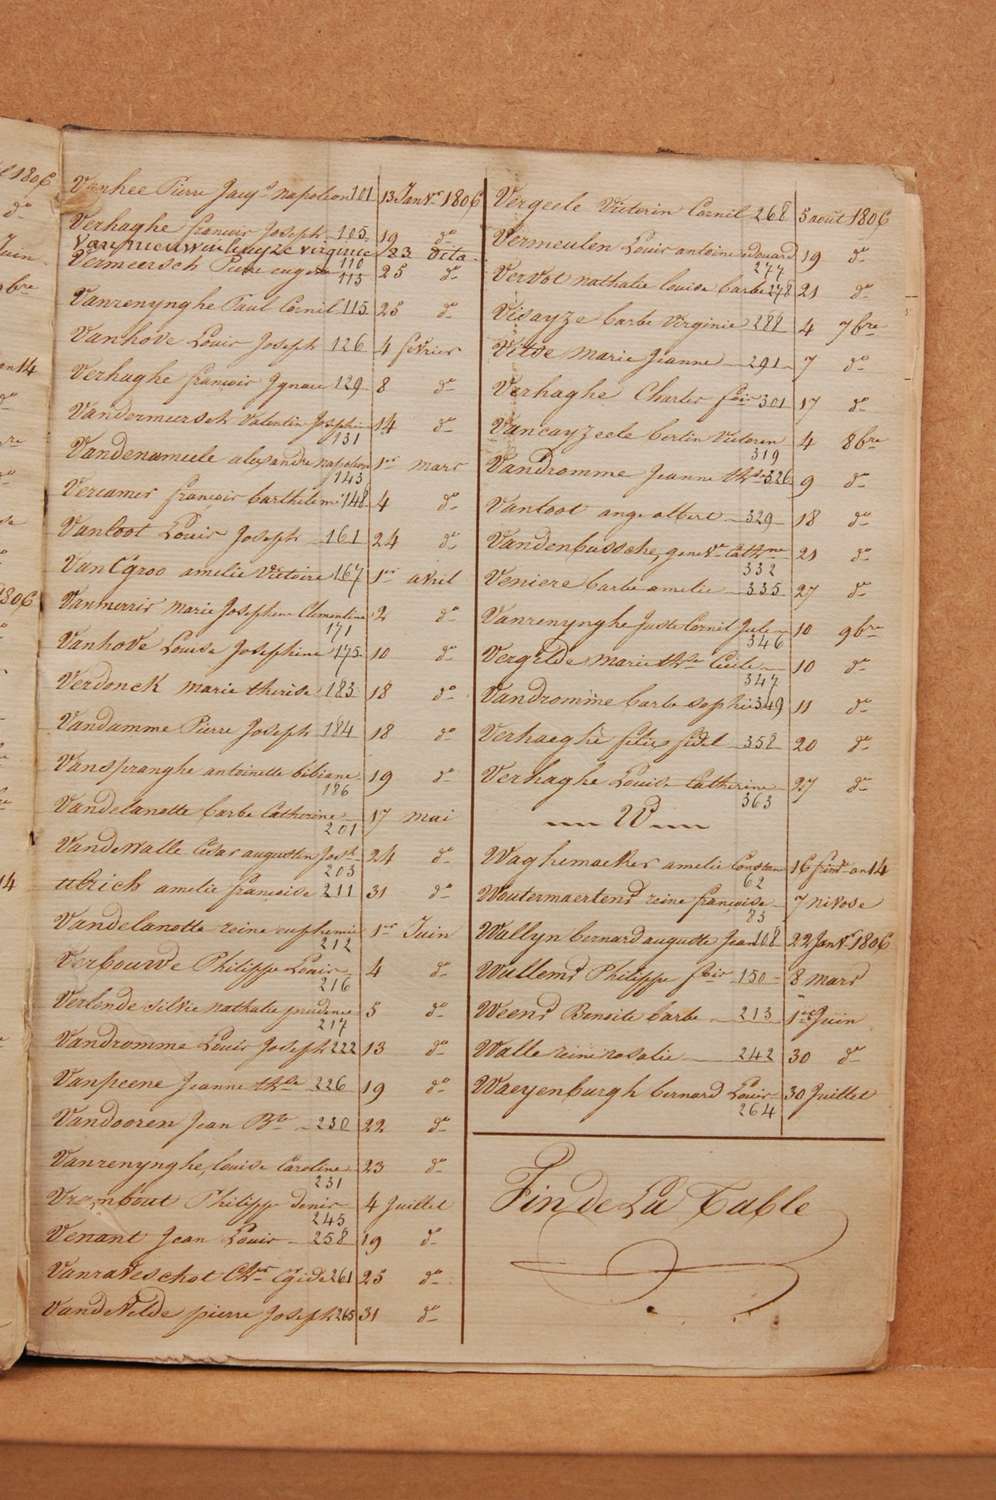 Vanhee Pierre Jacq. napoleon 101 13 Janvr 1806
Verhaghe françois Joseph 105 19 do
virginie 23 dito
Vermeersch Pierre eugene 110 25 do
113
Vanrenynghe Paul Cornil 115 25 do
Vanhove Louis Joseph 126 4 fevrier
Verhaghe françois Ignace 129 8 do
Vandermeersch Valentin Joseph 14 do
131
Vandenameele alexandre napoleon 1er mars
143
Vercamer françois barthelemi 148 4 do
Vanloot Louis Joseph 161 24 do
VanCgroo amelie Victoire 167 1er avril
Vanmerris marie Josephine Clementine 2 do
171
Vanhove Louise Josephine 175 10 do
Verdonck marie therese 183 18 do
Vandamme Pierre Joseph 184 18 do
Vanspranghe antoinette bibiane 19 do
186
Vandelanotte barbe Catherine 17 mai
201
Vandewalle Cesar augustin Josh 24 do
203
ulrich amelie françoise 211 31 do
Vandelanotte reine euphemie 1er Juin
212
Verbouwe Philippe Louis 4 do
216
Verlende silvie nathalie prudence 5 do
217
Vandromme Louis Joseph 222 13 do
Vanpeene Jeanne thse 226 19 do
Vandooren Jean Bte 230 22 do
Vanrenynghe, louise Caroline 23 do
231
Vrombout Philippe denis 4 Juillet
245
Venant Jean Louis 258 19 do
Vanraveschot Chs Egide 261 25 do
VandeVelde pierre Joseph 265 31 do
Vergeele Victorin Cornil 268 5 aout 1806
Vermeulen Louis antoine edouard 19 do
277
Vervot nathalie louise barbe 278 21 do
Visayze barbe Virginie 288 4 7bre
Vitse marie Jeanne 291 7 do
Verhaghe Charles fois 301 17 do
Vancayzeele bertin Victorin 4 8bre
319
Vandromme Jeanne thse 326 9 do
Vanloot ange albert 329 18 do
Vandenbussche, genevve Cathne 21 do
332
Veniere barbe amelie 335 27 do
Vanrenynghe Juste Cornil Jule 10 9bre
346
Vergilde marie thse Cecile 10 do
347
Vandromme barbe sophie 349 11 do
Verhaeghe felix fidel 358 20 do
Verhaghe Louise Catherine 27 do
363
W
Waghemaeker amelie Constan 16 frimre an 14
62
Woutermaertens reine françoise 7 nivose
83
Wallyn bernard auguste Jean 108 22 Janvr 1806
Wullems Philippe fois 150 8 mars
Weens Benoite barbe 213 1er Juin
Walle reine rosalie 242 30 do
Waeyenburgh bernard Louis 30 Juillet
264
Fin de La Table